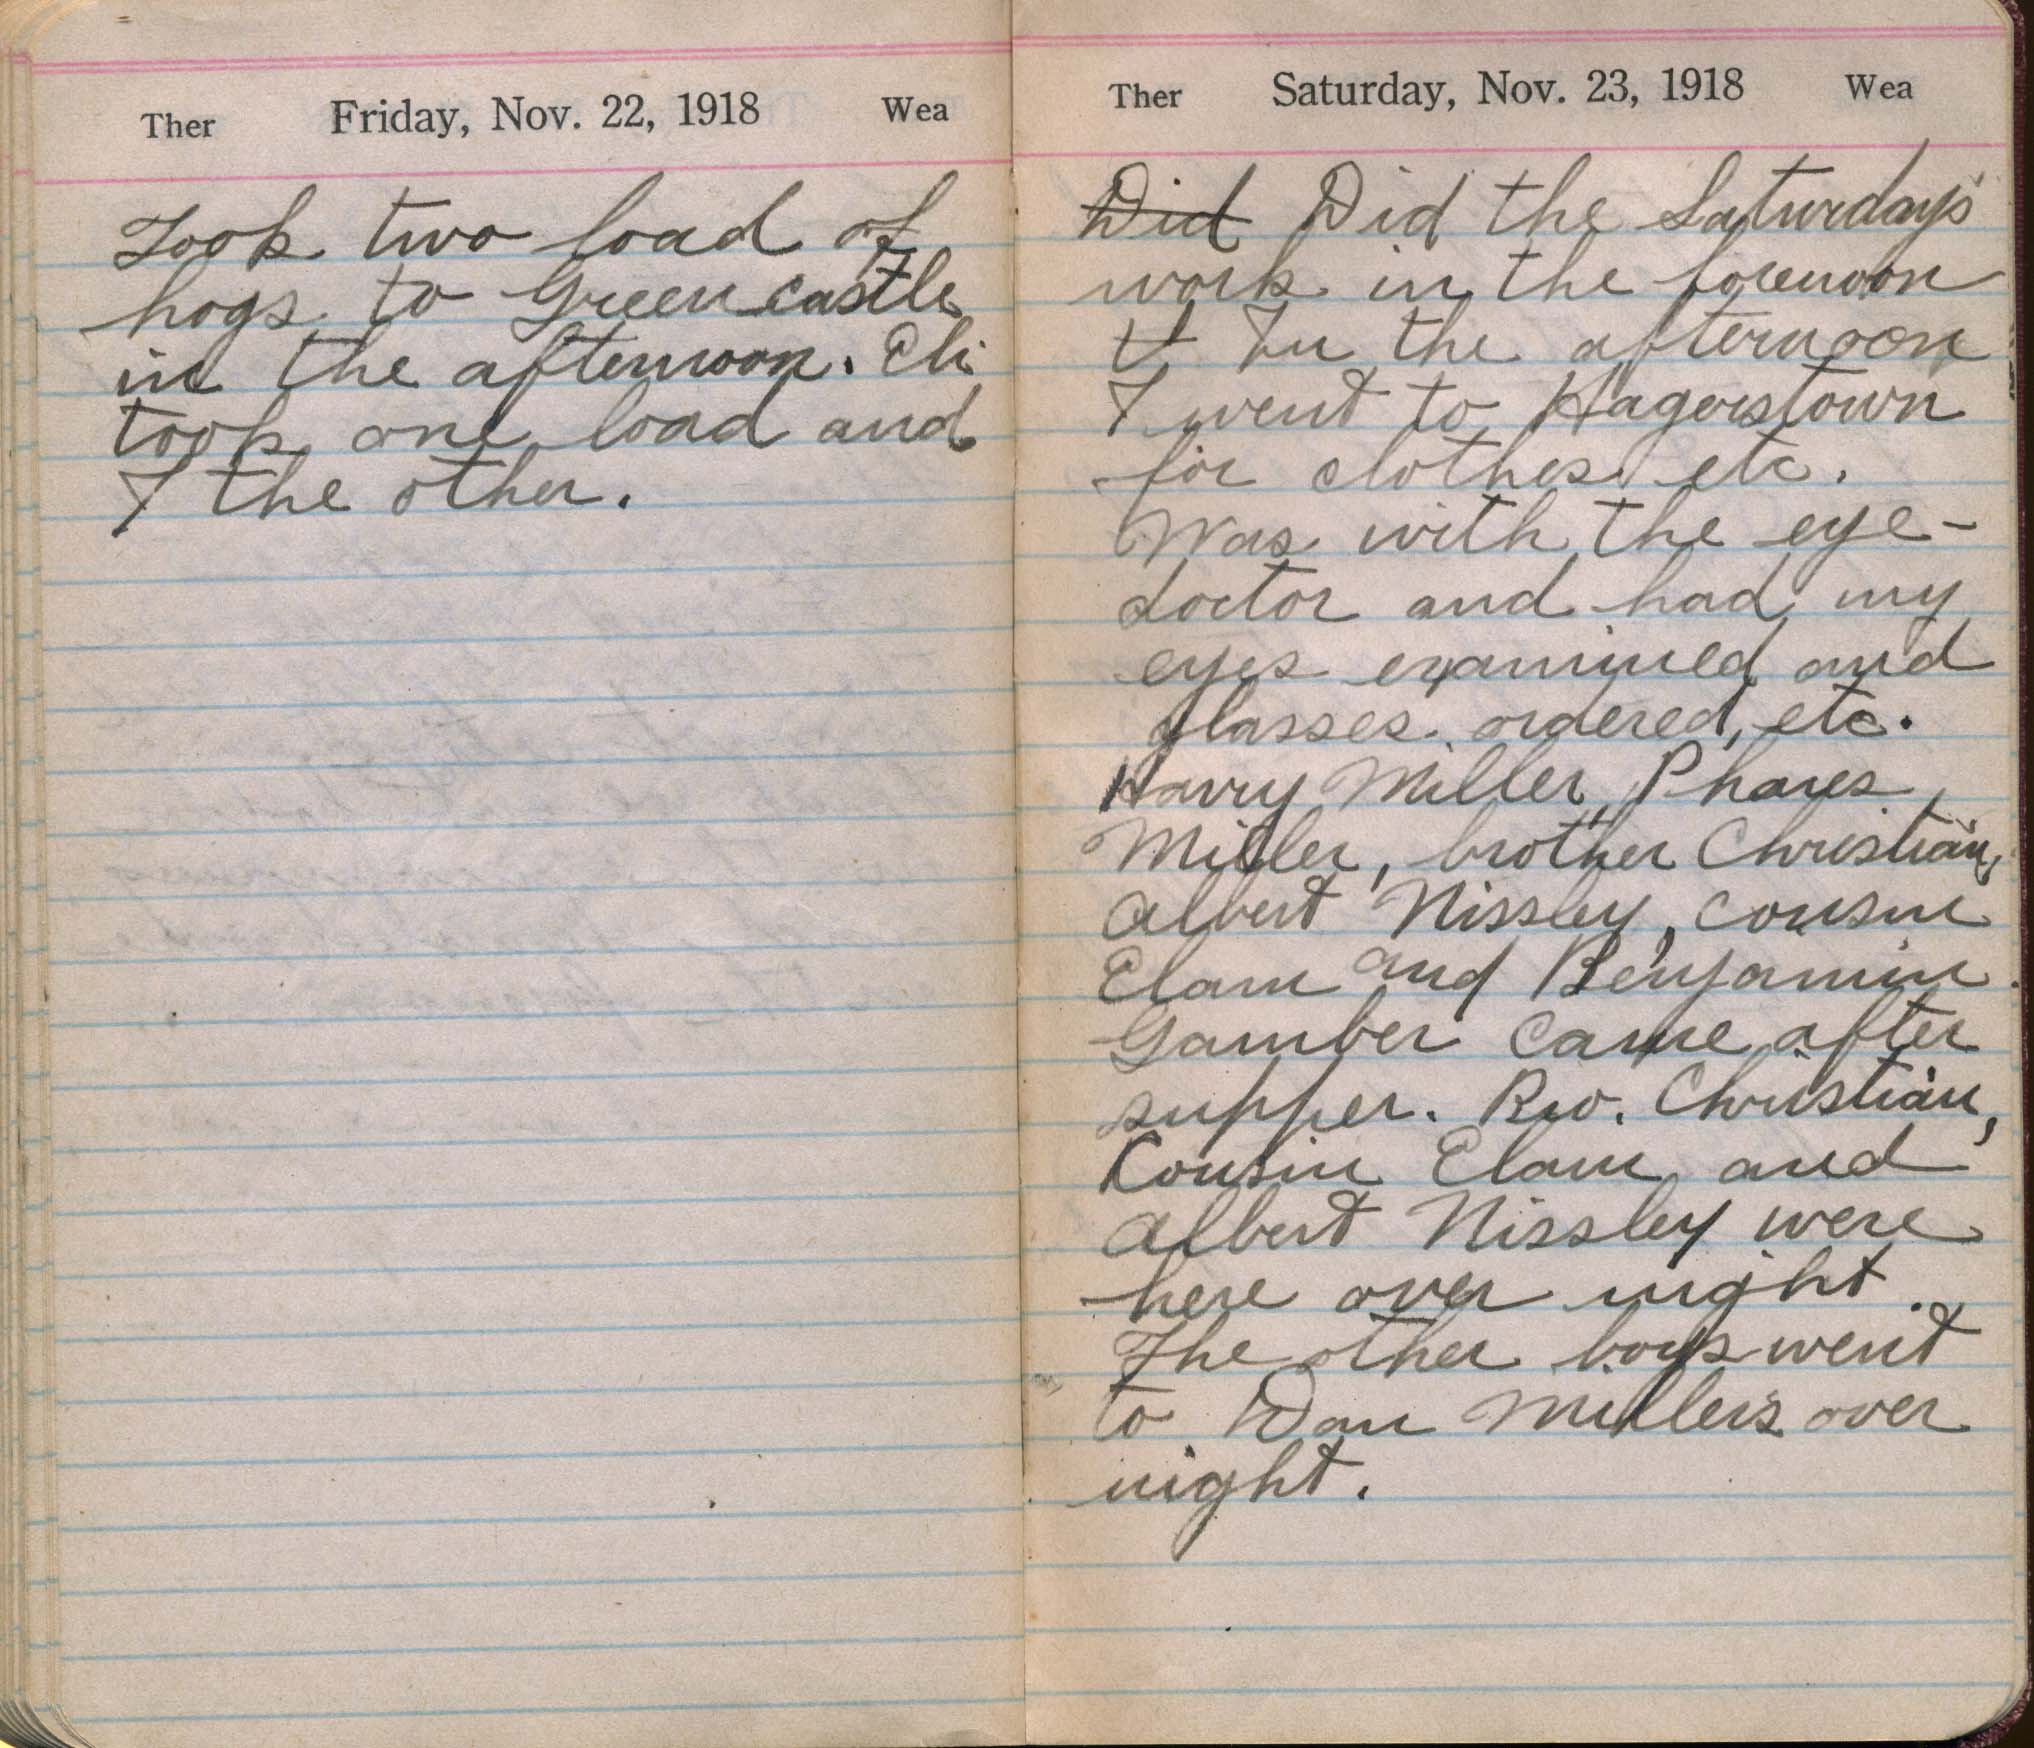 Ther Friday, Nov. 22, 1918 Wea
Took two load of
hogs to Greencastle
in the afternoon. Eli
took one load and
I the other.
Ther Saturday, Nov. 23, 1918 Wea
Did Did the Saturday's
work in the forenoon
In the afternoon
I went to Hagerstown
for clothes etc.
Was with the eye-
doctor and had my
eyes examined and
glasses ordered, etc.
Harry Miller, Phares
Miller, brother Christian,
Albert Nissley, cousin
Elam and Benjamin
Gamber came after
supper. Christian,
Cousin Elam and
Albert Nissley were
here over night.
The other boys went
to Dan Millers over
night.